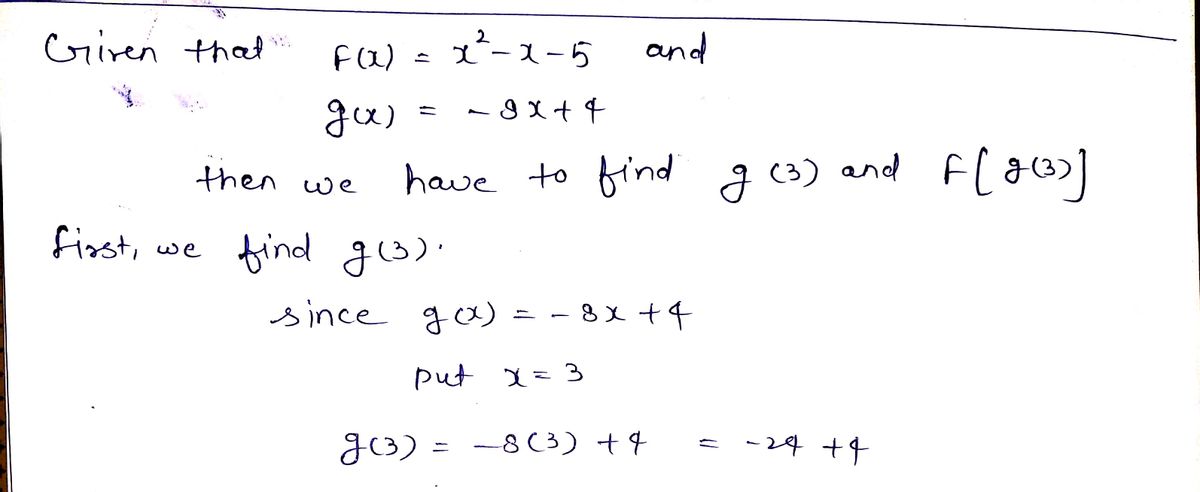 Given that f(x) = x² - x - 5 and
g(x) = - 8x + 4
then we have to find g(3) and f[g(3)]
first, we find g(3).
since g(x) = - 8x + 4
put x = 3
g(3) = -8(3) + 4 = -24 + 4